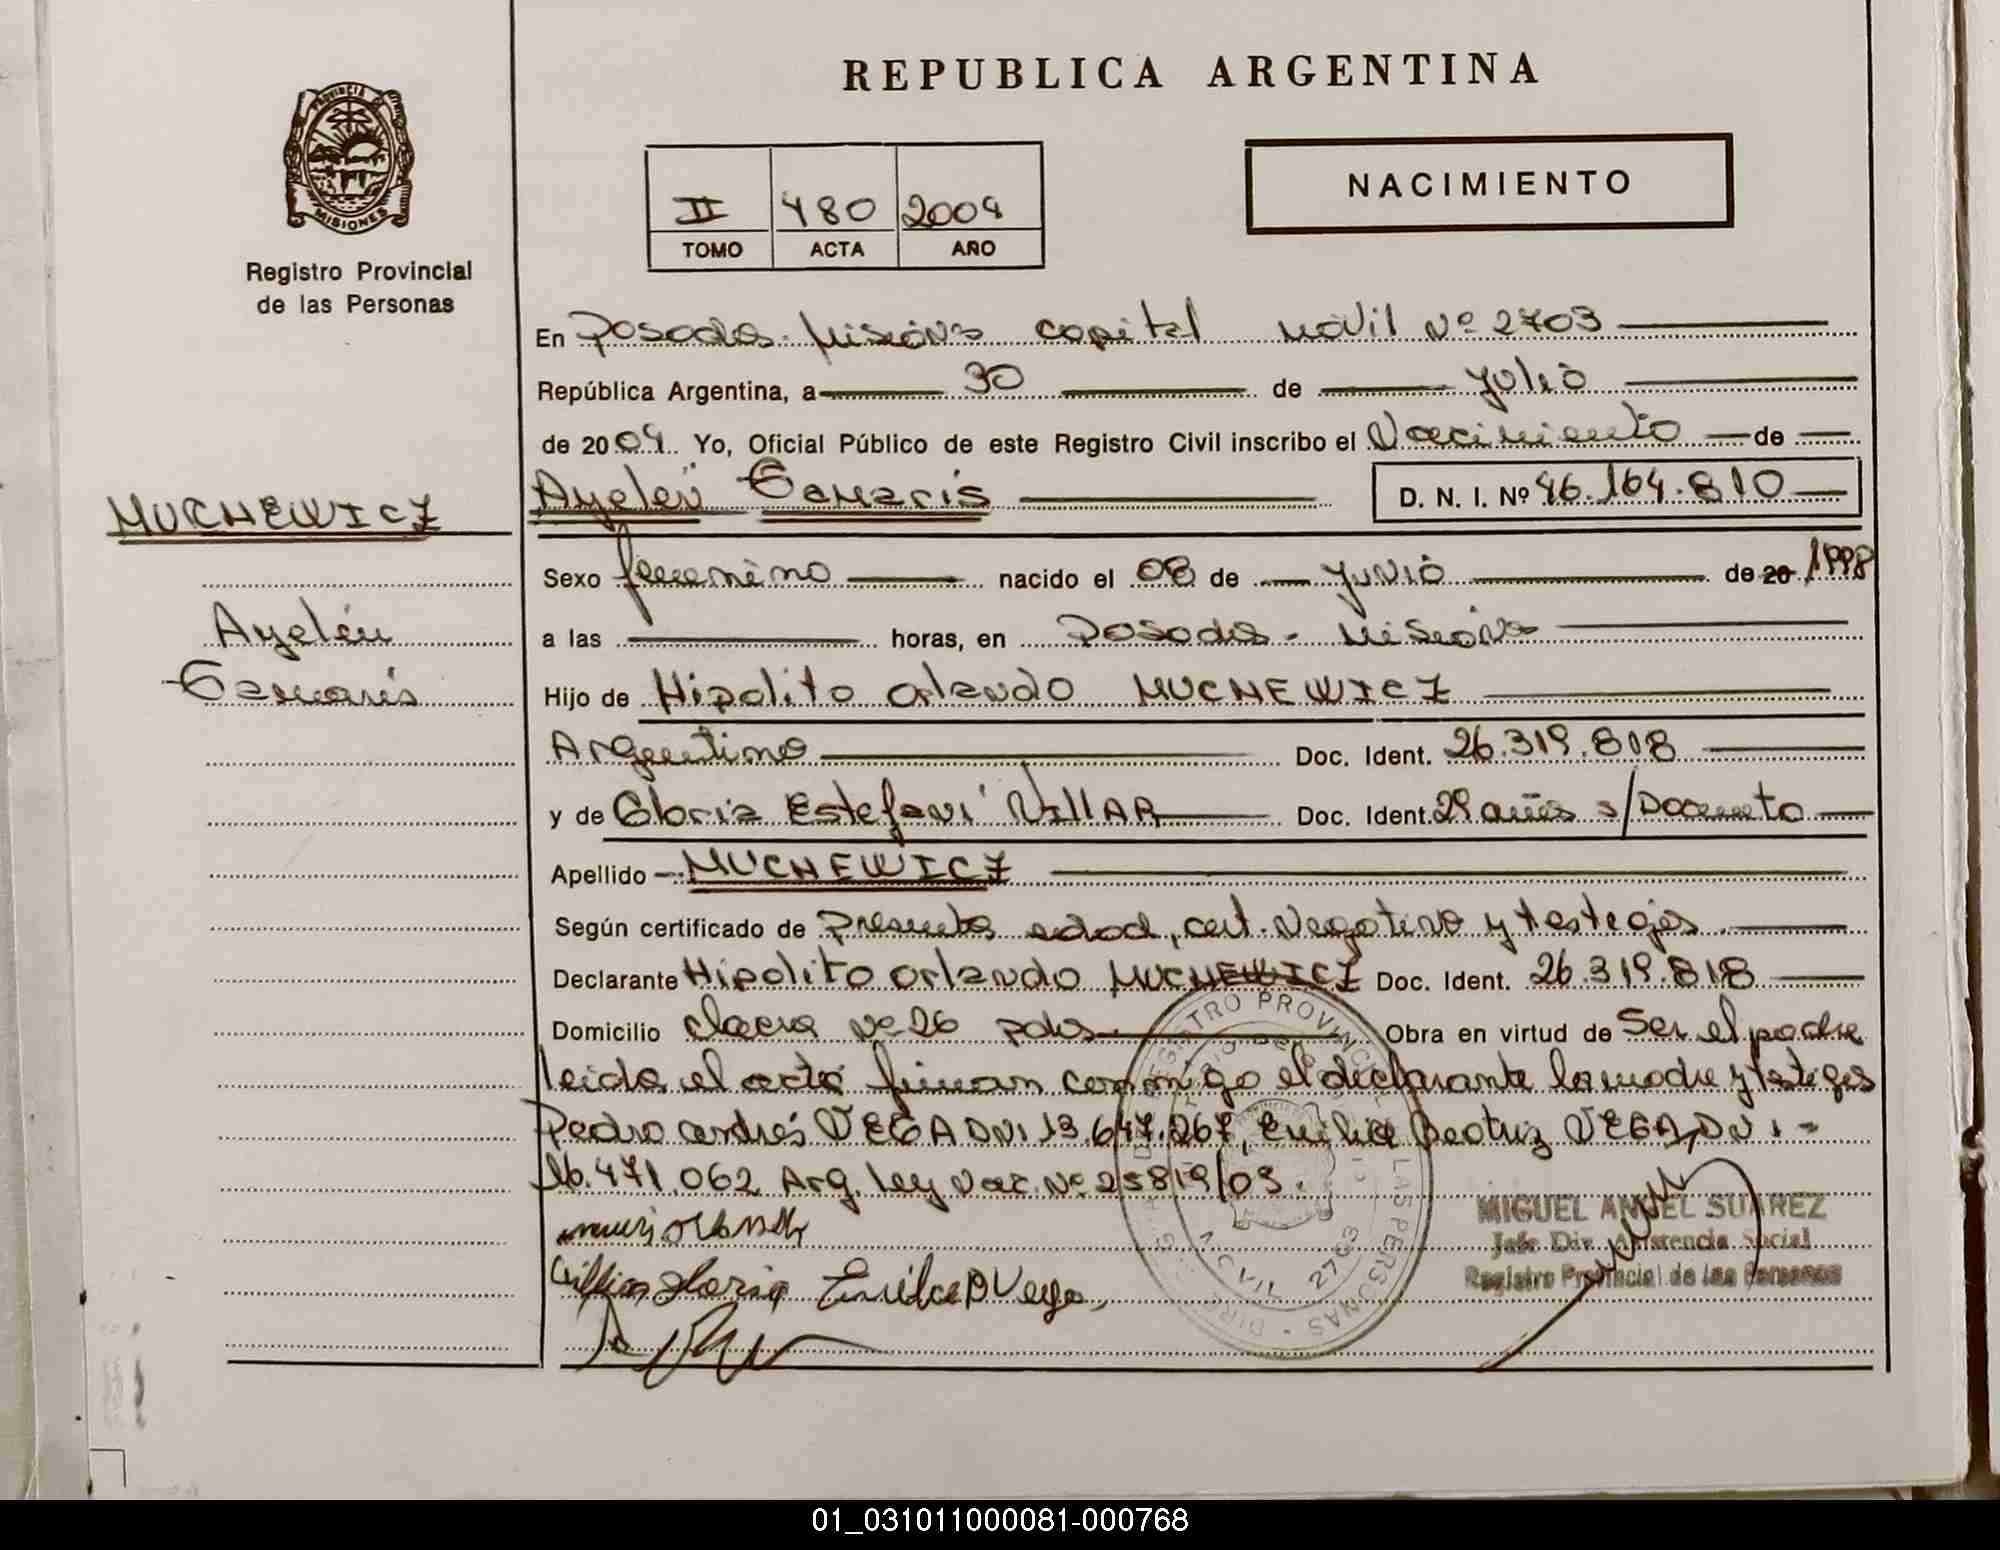 REPUBLICA ARGENTINA
PROVINCIA DE
MISIONES
Registro Provincial
de las Personas
II 480 2004
TOMO ACTA AÑO
NACIMIENTO
En Posadas - Misiones capital Móvil Nº 2703
República Argentina, a 30 de julio
de 2004 Yo, Oficial Público de este Registro Civil inscribo el Nacimiento de
MUCHEWICZ
Ayelén Tamaris D. N. I. Nº 46.164.810
Sexo femenino nacido el 08 de junio de 20 1998
Ayelén
a las horas, en Posadas - Misiones
Tamaris
Hijo de Hipolito Orlando MUCHEWICZ
Argentino Doc. Ident. 26.319.818
y de Gloria Estefaní VillAR Doc. Ident. 29 años s/Documento
Apellido MUCHEWICZ
Según certificado de presunta edad, cert. Negativo y testigos.
Declarante Hipolito Orlando MUCHEWICZ Doc. Ident. 26.319.818
Domicilio chacra Nº 26 pdas Obra en virtud de Ser el padre
leida el acta firman conmigo el declarante la madre y testigos
Pedro andrés VEGA DNI 13.647.267, Emilia Beatriz VEGA, DNI -
16.471.062 Arg. ley Nac. Nº 25819/03.
MIGUEL ANGEL SUAREZ
Jefe Div. Asistencia Social
Registro Provincial de las Personas
MOVIL 2703
01_031011000081-000768